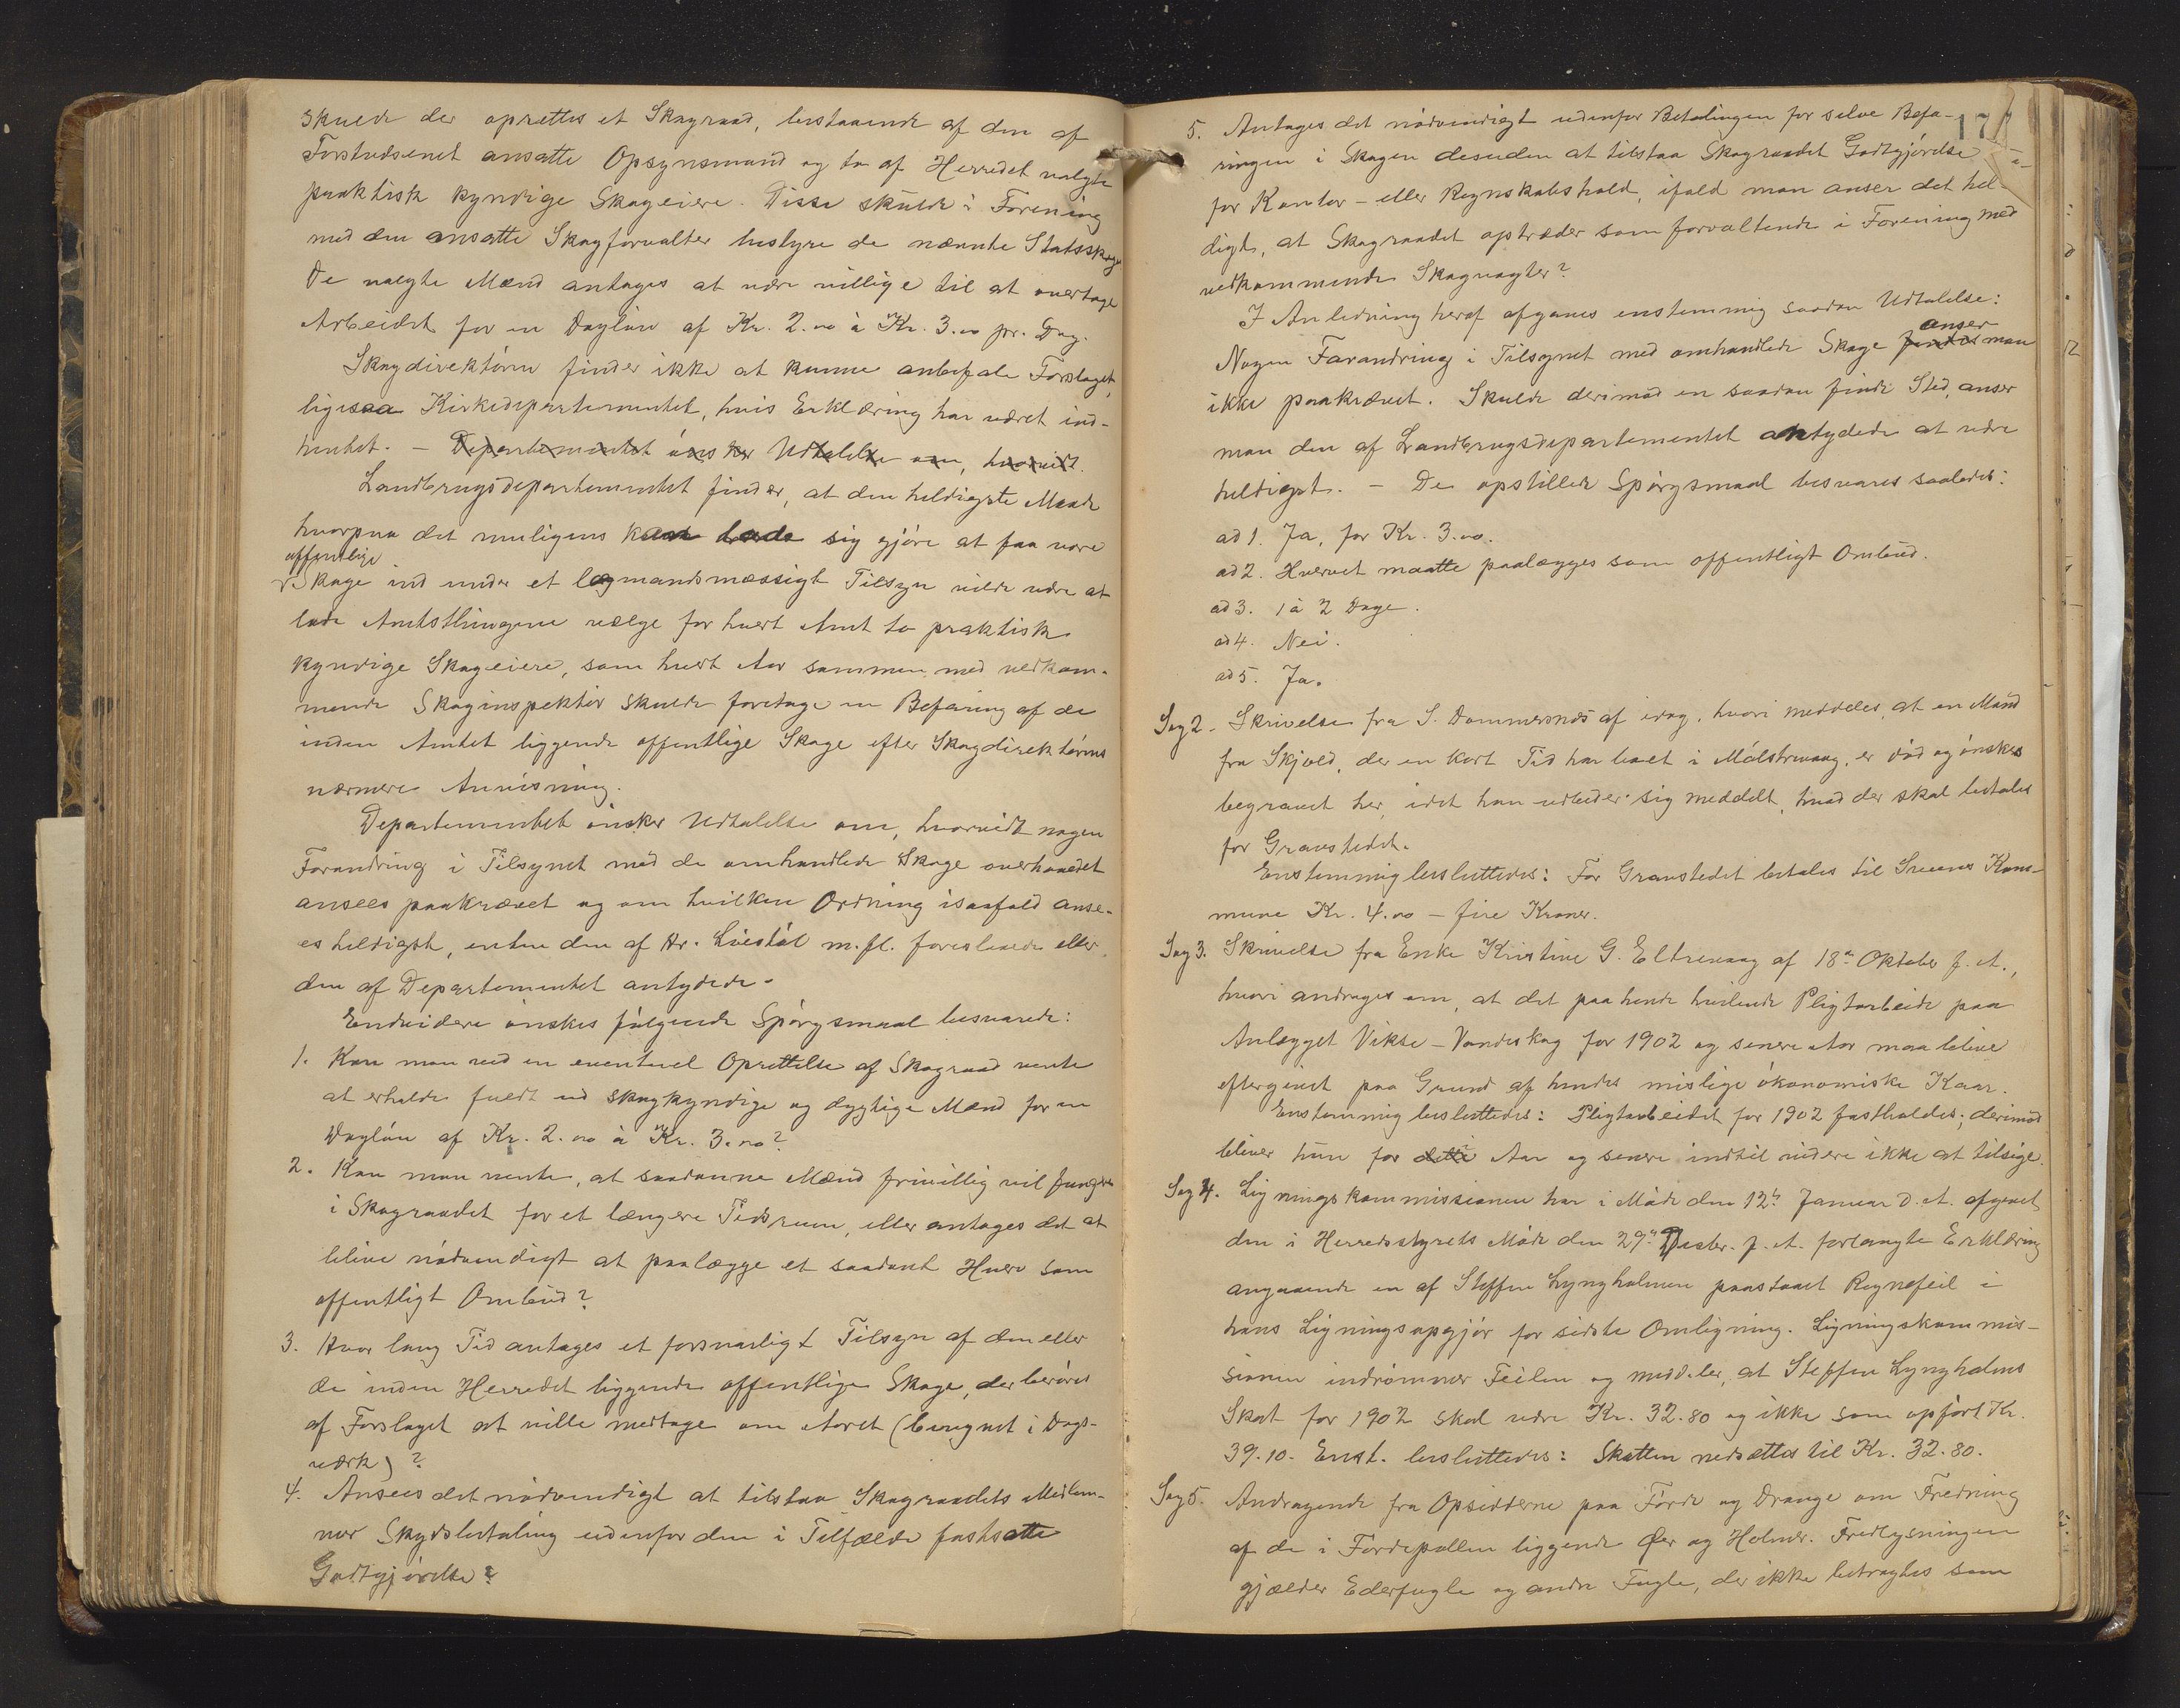 skulde der oprettes et Skograad, bestaaende af den af
Forstvæsenet ansatte Opsynsmand og to af Herredet valgte
praktisk kyndige Skogeiere. Disse skulde i Forening
med den ansatte Skogforvalter bestyre de nævnte Statsskoge
De valgte Mænd antages at være villige til at overtage
Arbeidet for en Dagløn af Kr. 2.00 à Kr. 3.00 pr. Dag.
Skogdirektøren finder ikke at kunne anbefale Forslaget,
ligesaa Kirkedepartementet, hvis Erklæring har været ind-
hentet. – Departementet ønsker Udtalelse om, hvorvidt.
Landbrugsdepartementet finder, at den heldigste Maade
hvorpaa det muligens kan lade sig gjøre at faa vore
offentlige
Skoge ind under et lægmandsmæssigt Tilsyn vilde være at
lade Amtsthingene vælge for hvert Amt to praktisk
kyndige Skogeiere, som hvert Aar sammen med vedkom-
mende Skoginspektør skulde foretage en Befaring af de
inden Amtet liggende offentlige Skoge efter Skogdirektørens
nærmere Anvisning.
Departementet ønsker Udtalelse om, hvorvidt nogen
Forandring i Tilsynet med de omhandlede Skoge overhovedet
ansees paakrævet og om hvilken Ordning isaafald anse-
es heldigst, enten den af Hr. Liestøl m.fl. foreslaaede eller
den af Departementet antydede.
Endvidere ønskes følgende Spørgsmaal besvarede:
1. Kan man ved en eventuel Oprettelse af Skograad vente
at erholde fuldt ud skogkyndige og dygtige Mænd for en
Dagløn af Kr. 2.00 à Kr. 3.00?
2. Kan man vente, at saadanne Mænd frivillig vil fungere
i Skograadet for et længere Tidsrum, eller antages det at
blive nødvendigt at paalægge et saadant Hverv som
offentligt Ombud?
3. Hvor lang Tid antages et forsvarligt Tilsyn af den eller
de inden Herredet liggende offentlige Skoge, der berøres
af Forslaget at ville medtage om Aaret (beregnet i Dags-
værk)?
4. Ansees det nødvendigt at tilstaa Skograadets Medlem-
mer Skydsbetaling udenfor den i Tilfælde fastsatte
Godtgjørelse?
171
5. Antages det nødvendigt udenfor Betalingen for selve Befa-
ringen i Skogen desuden at tilstaa Skograadet Godtgjørelse
for Kontor- eller Regnskabshold, ifald man anser det hel-
digt, at Skograadet optræder som forvaltende i Forening med
vedkommende Skogvogter?
I Anledning heraf afgaves enstemmig saadan Udtalelse:
anser
Nogen Forandring i Tilsynet med omhandlede Skoge findes man
ikke paakrævet. Skulde derimod en saadan finde Sted, anser
man den af Landbrugsdepartementet antydede at være
heldigst. – De opstillede Spørgsmaal besvares saaledes:
ad 1. Ja, for Kr. 3.00.
ad 2. Hvervet maatte paalægges som offentligt Ombud.
ad 3. 1 à 2 Dage.
ad 4. Nei.
ad 5. Ja.
Sag 2. Skrivelse fra S. Dommersnæs af idag, hvori meddeles, at en Mand
fra Skjold, der en kort Tid har boet i Mølstrevaag, er død og ønskes
begravet her, idet han udbeder sig meddelt, hvad der skal betales
for Gravstedet.
Enstemmig besluttedes: For Gravstedet betales til Sveens Kom-
mune Kr. 4.00 – fire Kroner.
Sag 3. Skrivelse fra Enke Kristine G. Eltrevaag af 18de Oktober f. A.,
hvori andrages om, at det paa hende hvilende Pligtarbeide paa
Anlægget Vikse–Vandaskog for 1902 og senere Aar maa blive
eftergivet paa Grund af hendes mislige økonomiske Kaar.
Enstemmig besluttedes: Pligtarbeidet for 1902 fastholdes; derimod
bliver hun for dette Aar og senere indtil videre ikke at tilsige.
Sag 4. Ligningskommissionen har i Møde den 12te Januar d. A. afgivet
den i Herredsstyrets Møde den 29de Decbr. f. A. forlangte Erklæring
angaaende en af Steffen Lyngholmen paastaaet Regnefeil i
hans Ligningsopgjør for sidste Omligning. Ligningskommis-
sionen indrømmer Feilen og meddeler, at Steffen Lyngholms
Skat for 1902 skal være Kr. 32.80 og ikke som opført Kr.
39.10. Enst. besluttedes: Skatten nedsættes til Kr. 32.80.
Sag 5. Andragende fra Opsidderne paa Førde og Drange om Fredning
af de i Førdepollen liggende Øer og Holmer. Fredlysningen
gjælder Ederfugle og andre Fugle, der ikke betragtes som